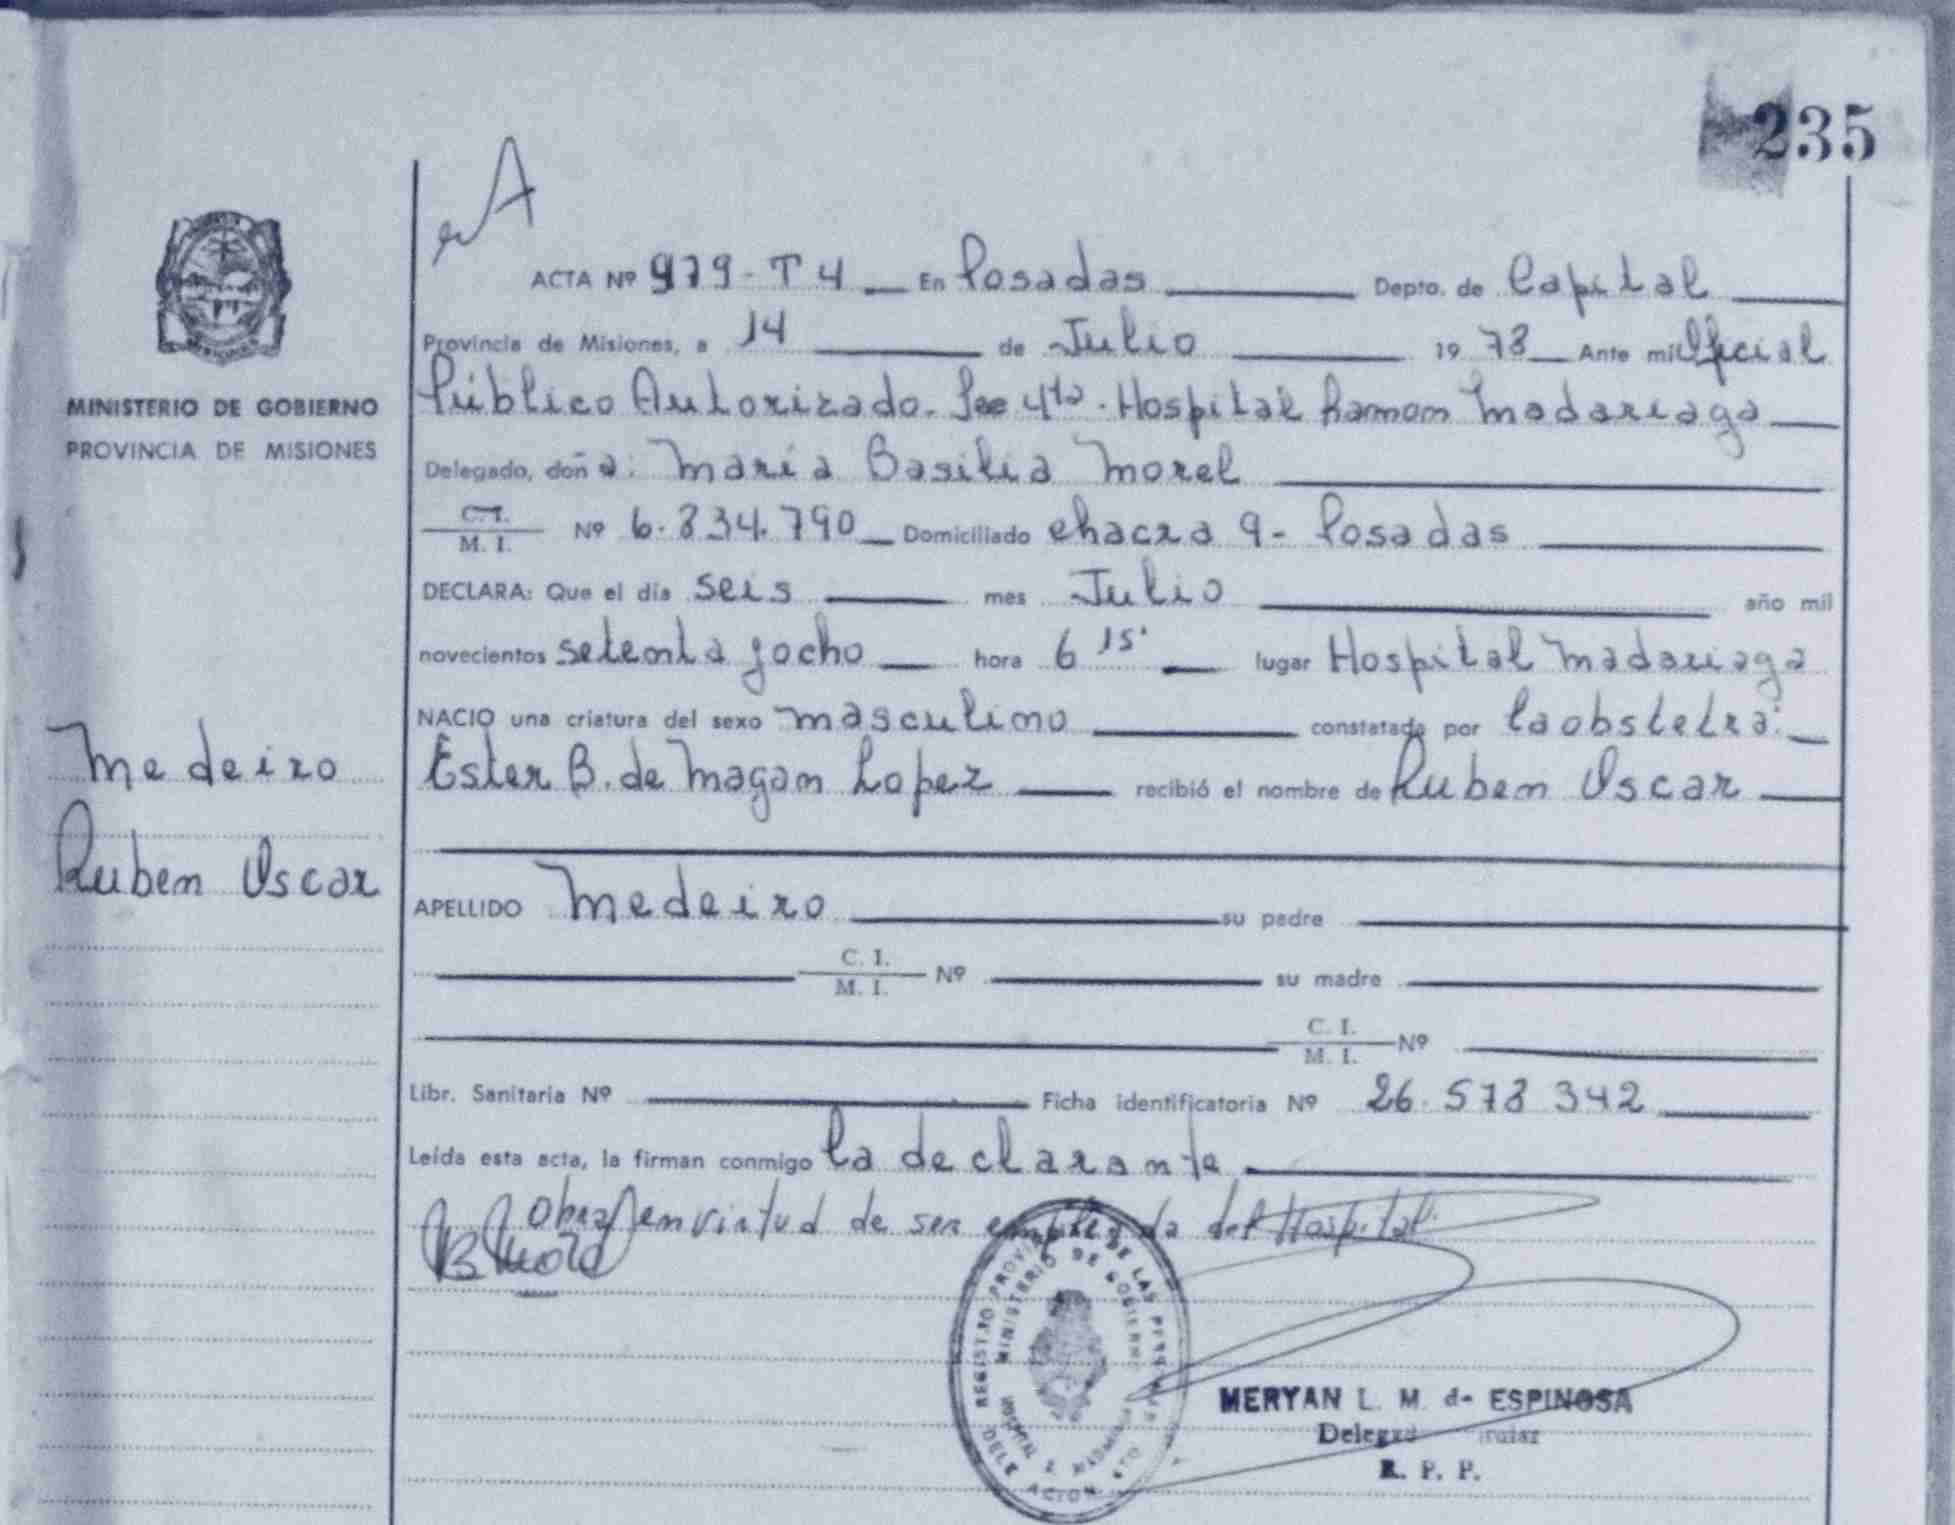 235
A
ACTA Nº 979-T 4 En Posadas Depto. de Capital
Provincia de Misiones, a 14 de Julio 19 78 Ante mi Oficial
Público Autorizado. Sec 4ta. Hospital Ramon Madariaga
Delegado, doña: Maria Basilia Morel
C.I. / M. I. Nº 6.834.790 Domiciliado chacra 9- Posadas
DECLARA: Que el día seis mes Julio año mil
novecientos setenta y ocho hora 6 15' lugar Hospital Madariaga
NACIO una criatura del sexo masculino constatada por la obstetra:
Ester B. de Magan Lopez recibió el nombre de Ruben Oscar
APELLIDO Medeiro su padre
C. I. / M. I. Nº su madre
C. I. / M. I. Nº
Libr. Sanitaria Nº Ficha identificatoria Nº 26.578 342
Leída esta acta, la firman conmigo la declarante
obra en virtud de ser empleada del Hospital.
MINISTERIO DE GOBIERNO
PROVINCIA DE MISIONES
Medeiro
Ruben Oscar
REGISTRO PROVINCIAL DE LAS PERSONAS
MINISTERIO DE GOBIERNO
MERYAN L. M. de ESPINOSA
R. P. P.